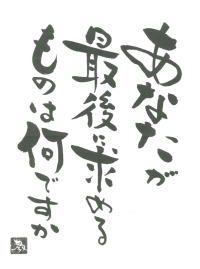 あなたが
最後に求める
ものは何ですか